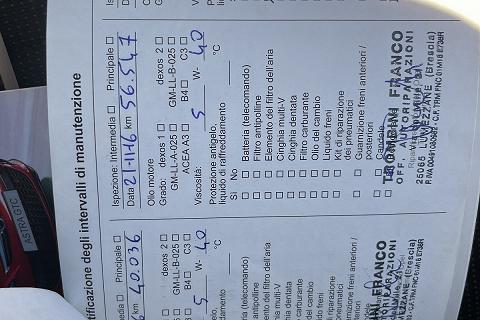 tificazione degli intervalli di manutenzione
Ispezione: Intermedia ☐ Principale ☐
Data 21-11-16 km 56.547
Olio motore
Grado: dexos 1 ☐ dexos 2 ☐
GM-LL-A-025 ☐ GM-LL-B-025 ☐
ACEA A3 ☐ B4 ☐ C3 ☐
Viscosità: 5 W- 40
Protezione antigelo,
liquido di raffreddamento °C
Sì No
☐ ☐ Batteria (telecomando)
☐ ☐ Filtro antipolline
☐ ☐ Elemento del filtro dell'aria
☐ ☐ Cinghia multi-V
☐ ☐ Cinghia dentata
☐ ☐ Filtro carburante
☐ ☐ Olio del cambio
☐ ☐ Liquido freni
☐ ☐ Kit di riparazione
dei pneumatici
☐ ☐ Guarnizione freni anteriori /
posteriori
TROMBINI FRANCO
OFF. AUTORIPARAZIONI
25065 LUMEZZANE (Brescia)
media ☐ Principale ☐
km 40.036
dexos 2 ☐
☐ GM-LL-B-025 ☐
☐ B4 ☐ C3 ☐
5 W- 40
°C
ria (telecomando)
antipolline
ento del filtro dell'aria
ia multi-V
ia dentata
carburante
el cambio
o freni
riparazione
eumatici
izione freni anteriori /
ri
INI FRANCO
ORIPARAZIONI
MEZZANE (Brescia)
ASTRA GTC